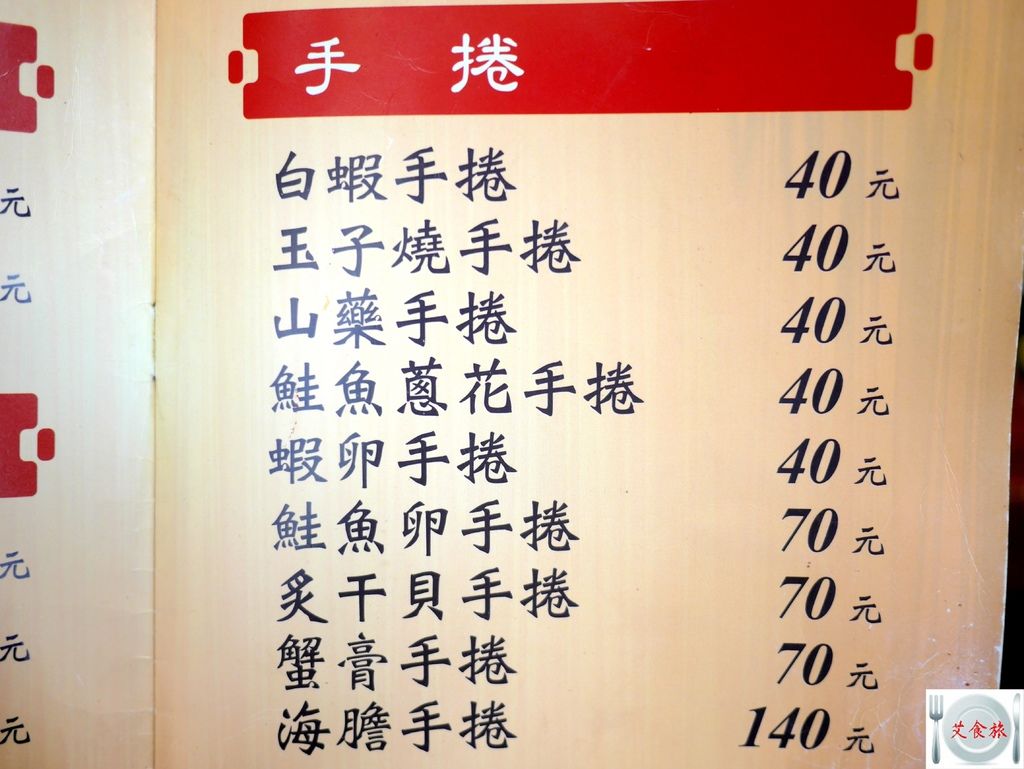 手 捲
白蝦手捲 40元
玉子燒手捲 40元
山藥手捲 40元
鮭魚蔥花手捲 40元
蝦卵手捲 40元
鮭魚卵手捲 70元
炙干貝手捲 70元
蟹膏手捲 70元
海膽手捲 140元
元
元
元
元
元
艾食旅